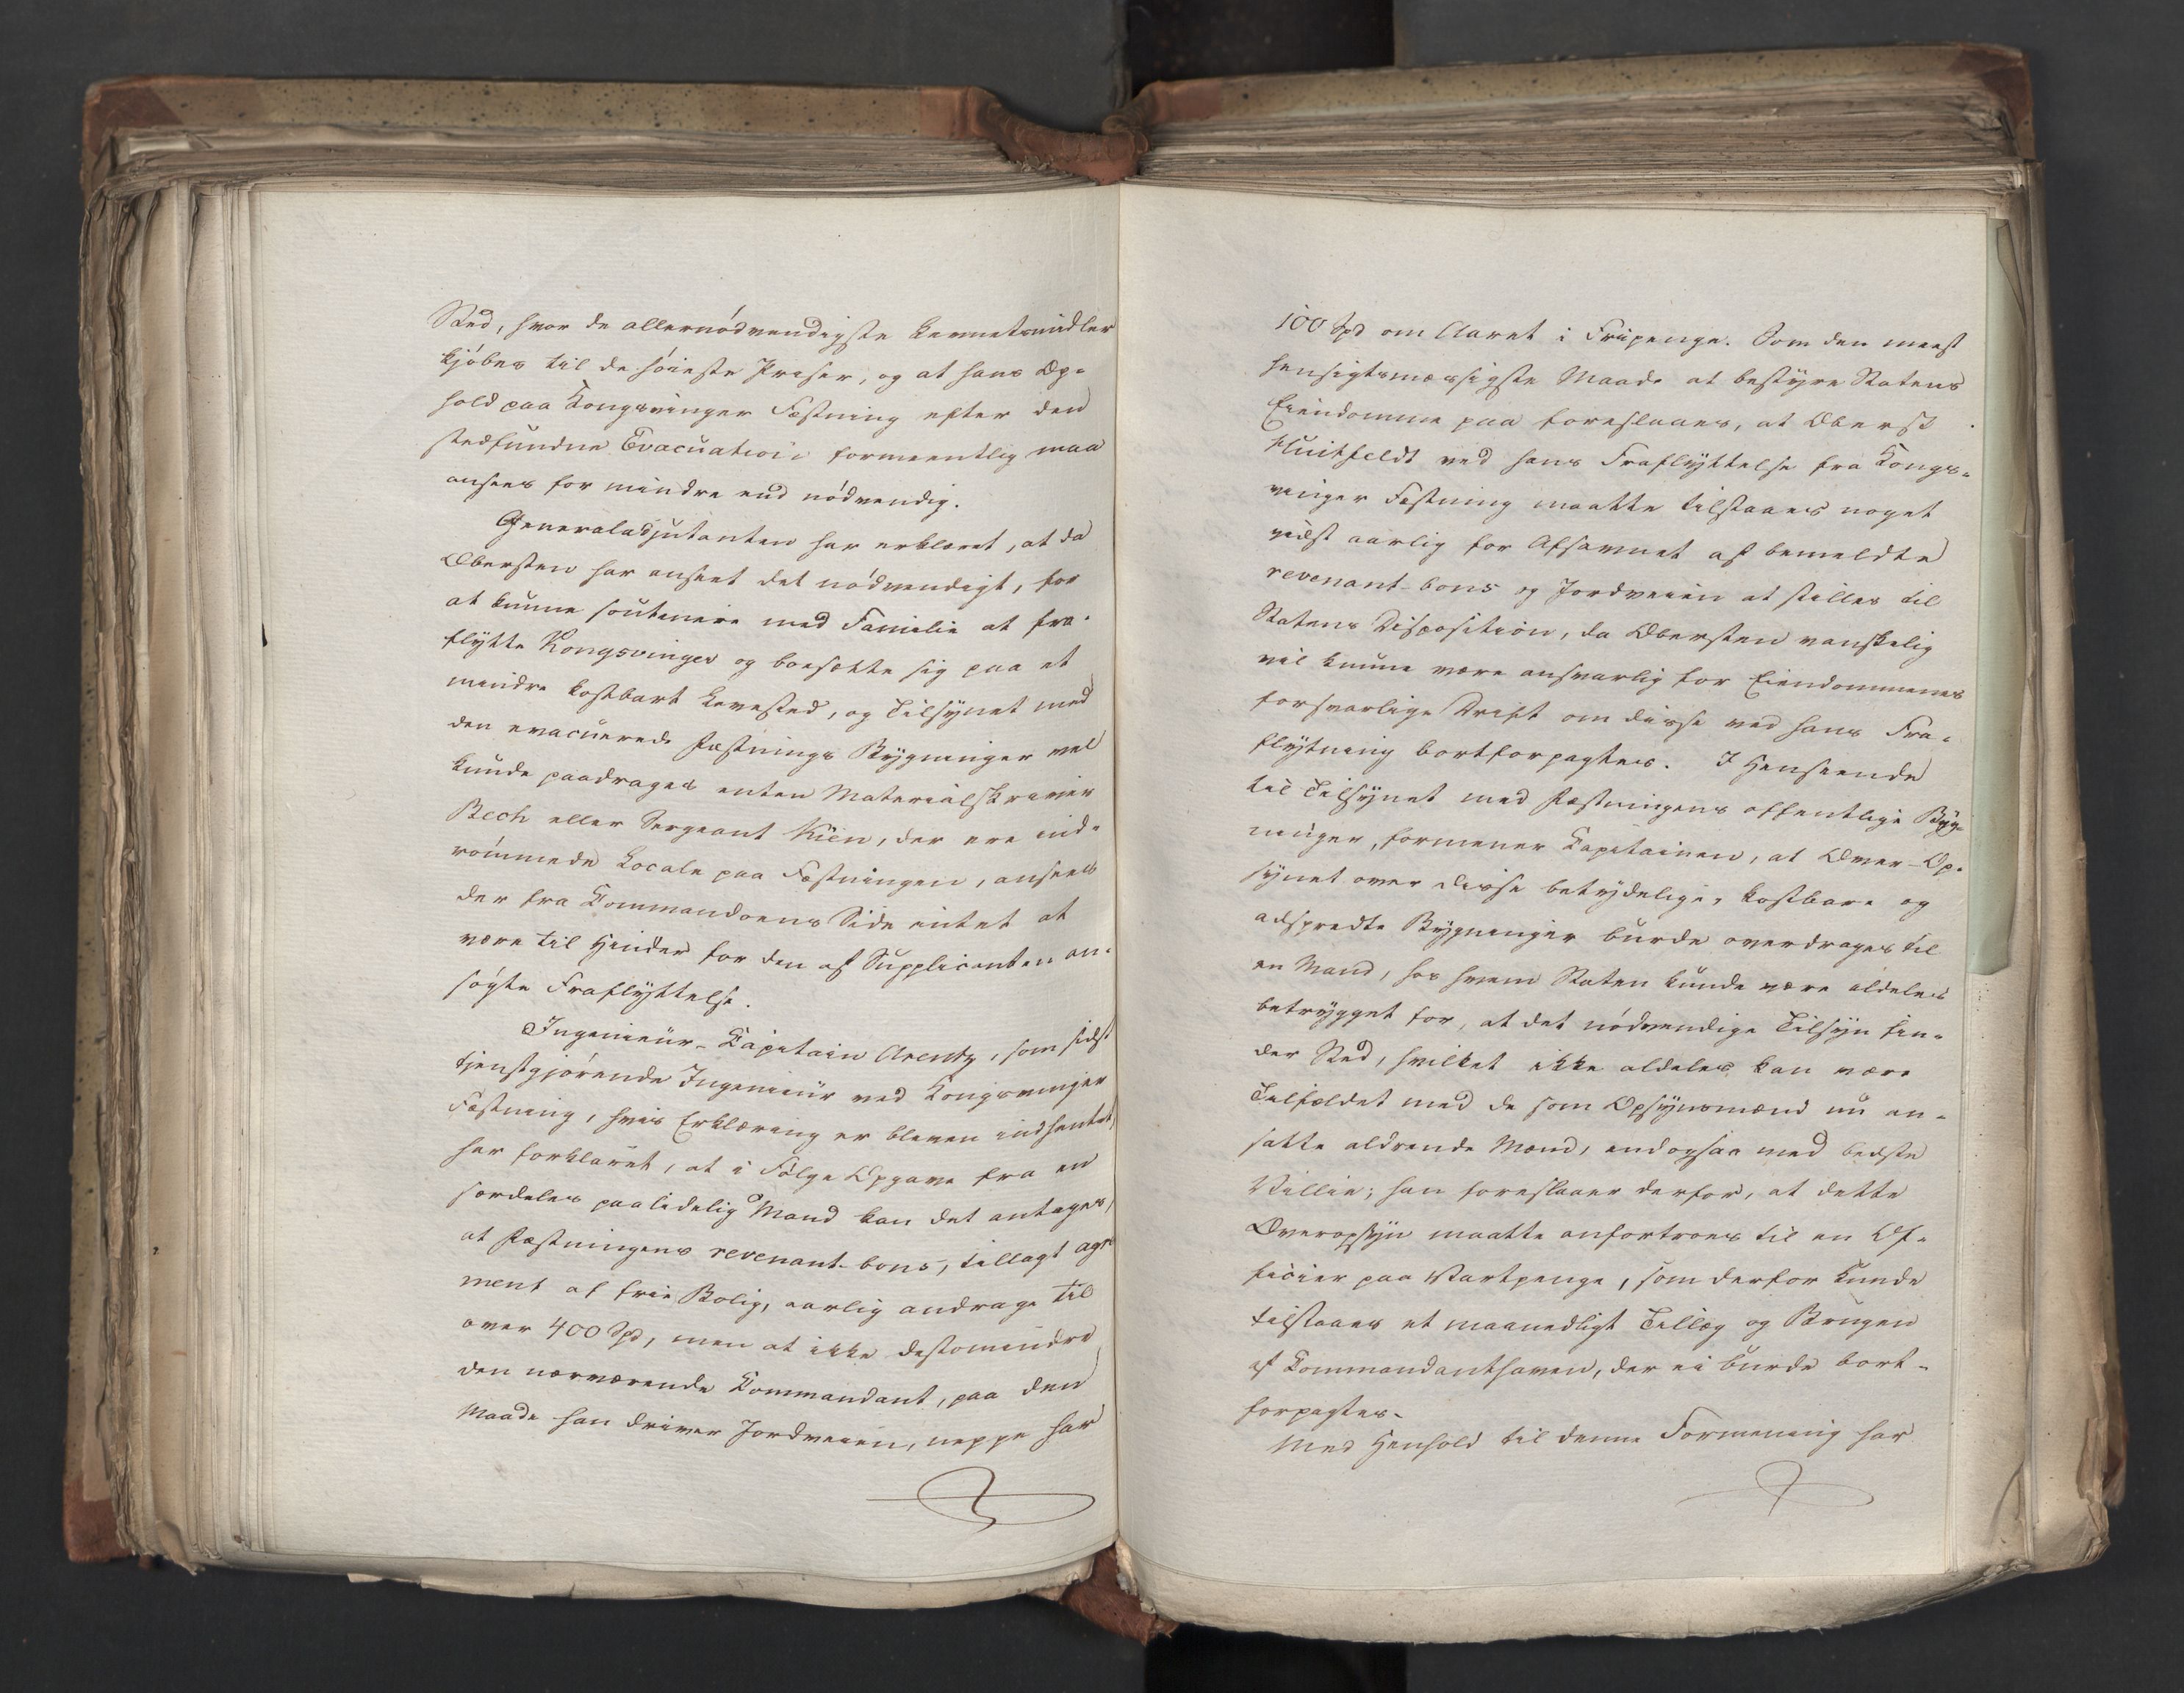 Sted, hvor de allernödvendigste Levnetsmidler
kjöbes til de höieste Priser, og at hans Op-
hold paa Kongsvinger Fæstning efter den
stedfundne Evacuation formeentlig maa
ansees for mindre end nödvendig.
Generaladjutanten har erklæret, at da
Obersten har anseet det nödvendigt, for
at kunne soutenere med Familie at fra-
flytte Kongsvinger og bosætte sig paa et
mindre kostbart Levested, og Tilsynet med
den evacuerede Fæstnings Bygninger vel
kunde paadrages enten Materialskriver
Bech eller Sergeant Kiën, der ere ind-
römmede Locale paa Fæstningen, ansees
der fra Commandoens Side intet at
være til Hinder for den af Supplicanten an-
sögte Fraflyttelse.
Ingenieur-Capitain Arentz, som sidst
tjenstgjörende Ingenieur ved Kongsvinger
Fæstning, hvis Erklæring er bleven indhentet,
har forklaret, at i Fölge Opgave fra en
særdeles paalidelig Mand kan det antages,
at Fæstningens revenant-bons, tillagt agre
ment af frie Bolig, aarlig andrage til
over 400 Spd, men at ikke destomindre
den nærværende Commandant, paa den
Maade han driver Jordveien, neppe har
100 Spd om Aaret i Friepenge. Som den meest
hensigtsmæssigste Maade at bestyre Statens
Eiendomme paa foreslaaes, at Oberst
Huitfeldt ved hans Fraflyttelse fra Kongs-
vinger Fæstning maatte tilstaaes noget
vist aarlig for Afsavnet af bemeldte
revenant-bons og Jordveien at stilles til
Statens Disposition, da Obersten vanskelig
vil kunne være ansvarlig for Eiendommenes
forsvarlige Drift om disse ved hans Fra-
flytning bortforpagtes. I Henseende
til Tilsynet med Fæstningens offentlige Byg-
ninger, formener Capitainen, at Over-Op-
synet over disse betydelige, kostbare og
adspredte Bygninger burde overdrages til
en Mand, hos hvem Staten kunde være aldeles
betrygget for, at det nödvendige Tilsyn fin-
der Sted, hvilket ikke aldeles kan være
Tilfældet med de som Opsynsmænd nu an-
satte aldrende Mænd, endogsaa med bedste
Villie; han foreslaaer derfor, at dette
Overopsyn maatte anfortroes til en Of-
ficier paa Vartpenge, som derfor kunde
tilstaaes et maanedligt Tillæg og Brugen
af Commandanthaven, der ei burde bort-
forpagtes.
Med Henhold til denne Formening har